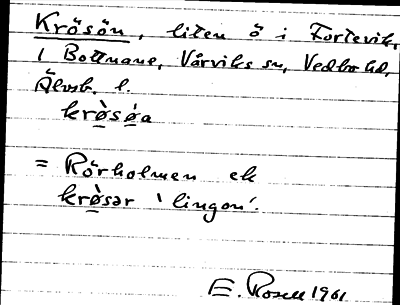 Krösön, liten ö i Fortevik,
i Bottnane, Vårviks sn, Vedbo hd,
Älvsb. l.
krø̀sø̀a
= Rörholmen ek
krø̀sər 'lingon'.
E. Rosell 1961